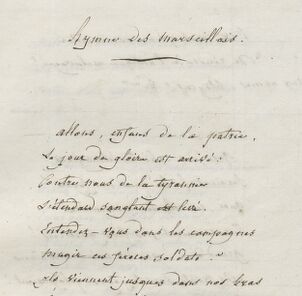 hymne des marseillais.
allons, enfans de la patrie,
Le jour de gloire est arrivé :
Contre nous de la tyrannie
L'étendard sanglant est levé.
Entendez-vous dans les campagnes
mugir ces féroces soldats ?
ils viennent jusques dans nos bras